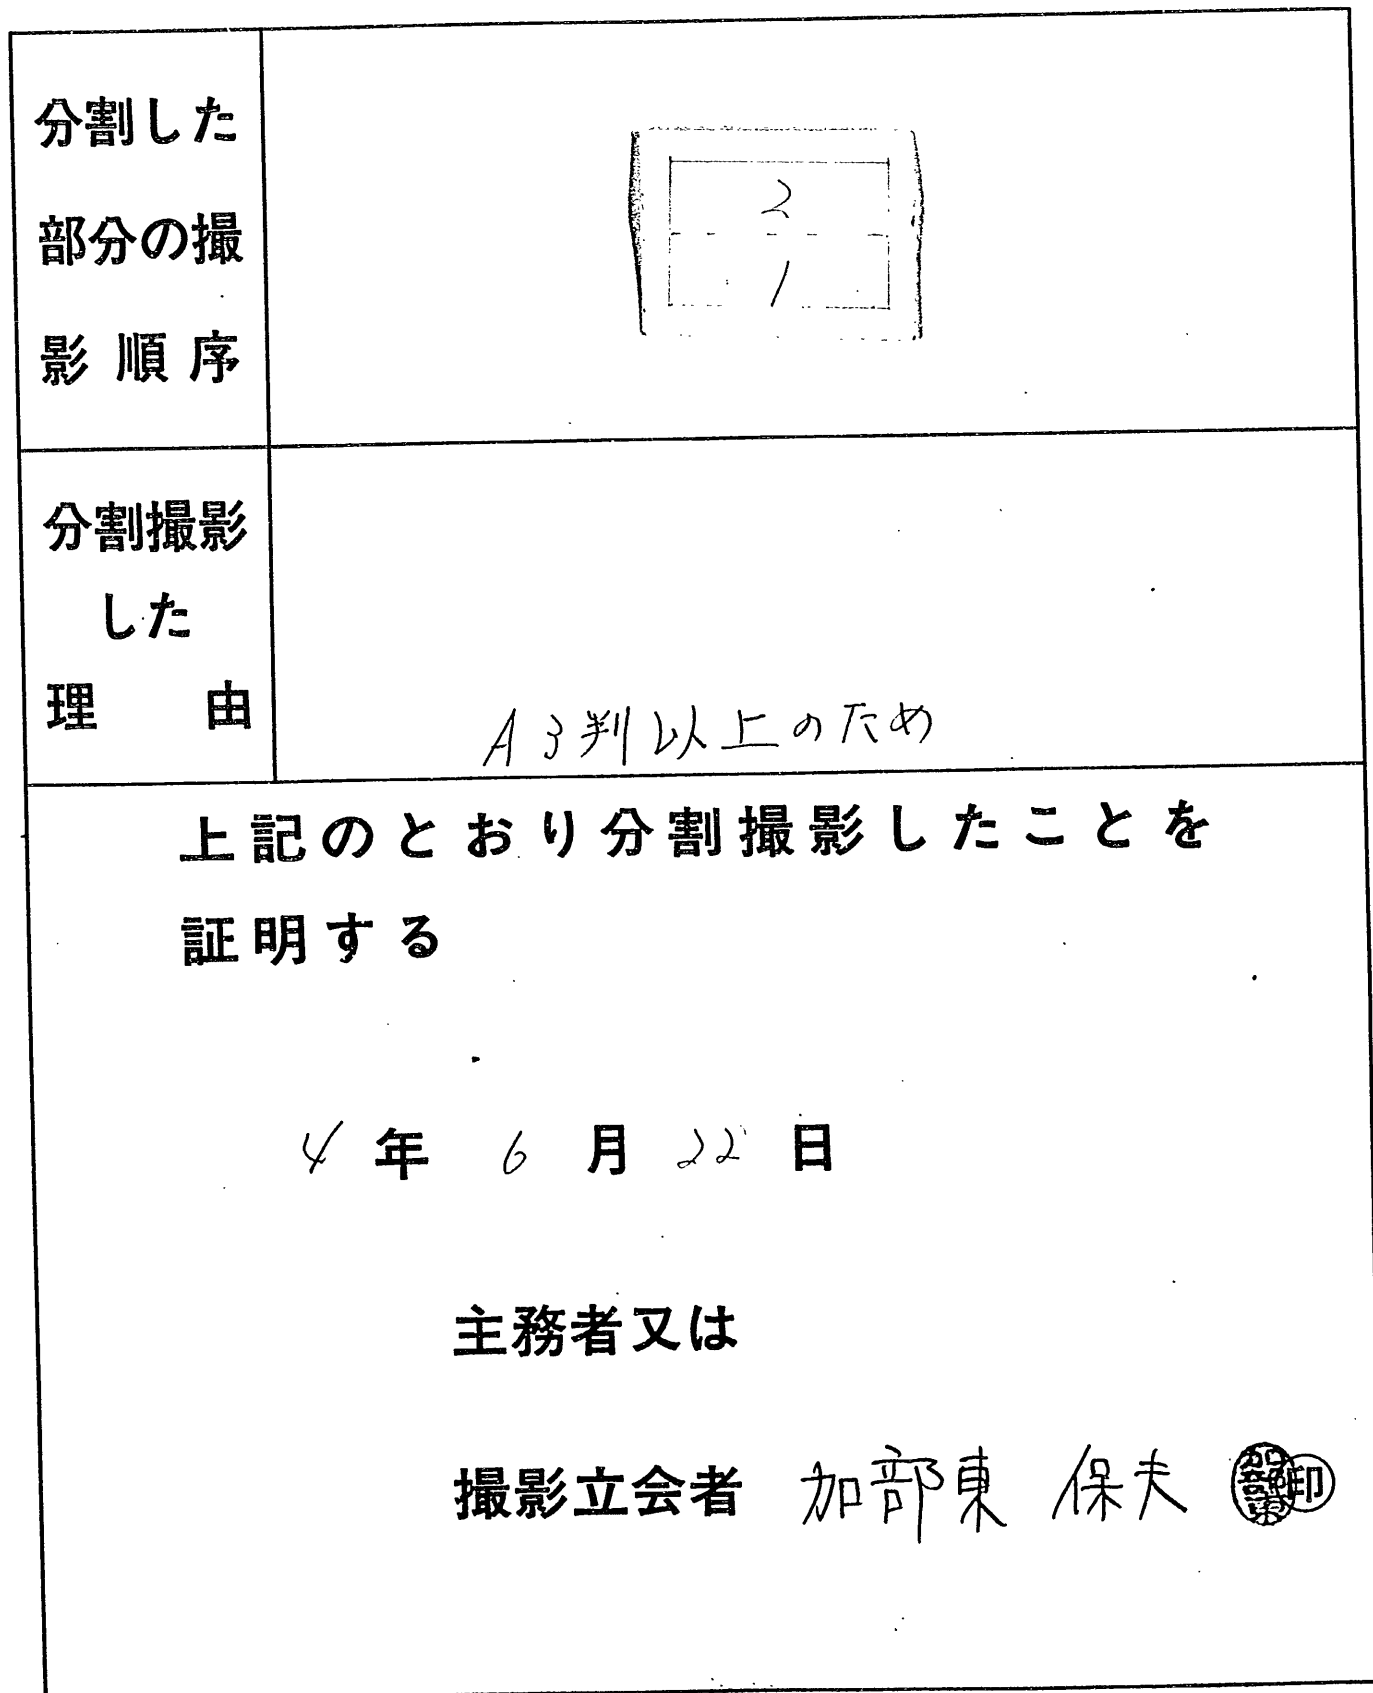 分割した
部分の撮
影順序
2
1
分割撮影
した
理由
A3判以上のため
上記のとおり分割撮影したことを
証明する
4年 6月 22日
主務者又は
撮影立会者 加部東 保夫 加部東 印